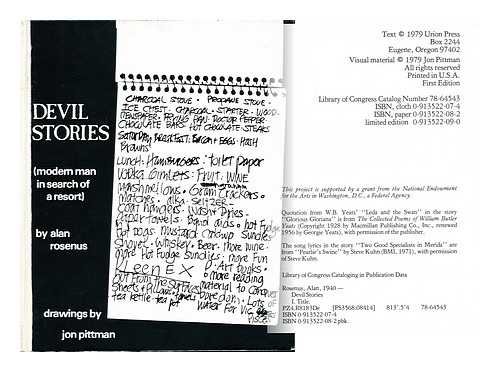 DEVIL
STORIES
(modern man
in search of
a resort)
by alan
rosenus
drawings by
jon pittman
CHARCOAL STOVE · PROPANE STOVE ·
ICE CHEST · CHARCOAL · STARTER · WOOD ·
NEWSPAPER · FRYING PAN · DOCTOR PEPPER
CHOCOLATE BARS · HOT CHOCOLATE · STEAKS
SATURDAY BREAKFAST: BACON + EGGS · HASH
Browns
Lunch: Hamburgers · toilet paper
Vodka Gimlets: Fruit: WINE
Marshmallows · Graham Crackers ·
Matches · alka-seltzer ·
Coat hangers · Wash'n Dries ·
paper towels · hot fudge
hot dogs mustard ketchup Sundaes
shovel · whiskey · Beer · more wine ·
more Hot Fudge Sundaes · more Fun
KLEENEX
more reading
Sheets + Pillows material to
tea kettle · tea pot Lots
water For
Text © 1979 Urion Press
Box 2244
Eugene, Oregon 97402
Visual material © 1979 Jon Pittman
All rights reserved
Printed in U.S.A.
First Edition
Library of Congress Catalog Number 78-64543
ISBN, cloth 0-913522-07-4
ISBN, paper 0-913522-08-2
limited edition 0-913522-09-0
This project is supported by a grant from the National Endowment
for the Arts in Washington, D.C., a Federal Agency.
Quotation from W.B. Yeats' "Leda and the Swan" in the story
"Glorious Gloriana" is from The Collected Poems of William Butler
Yeats (Copyright 1928 by Macmillan Publishing Co., Inc., renewed
1956 by George Yeats), with permission of the publisher.
The song lyrics in the story "Two Good Specialists in Merida" are
from "Pearlie's Swine" by Steve Kuhn (BMI, 1971), with permission
of Steve Kuhn.
Library of Congress Cataloging in Publication Data
Rosenus, Alan, 1940 –
Devil Stories
I. Title.
PZ4.R8183De [PS3568.O8414] 813'.5'4 78-64543
ISBN 0-913522-07-4
ISBN 0-913522-08-2 pbk.